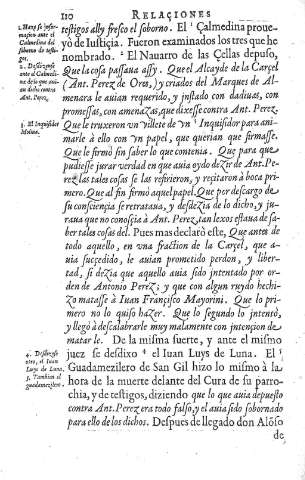 110 RELACIONES
1. Haze se informacion ante el Calmedina del soborno de testigos.
2. Desdizense ante el Calmedina de lo que auian dicho contra Ant. Perez,
3. El Inquisidor Molina.
4. Desdizese otro, el Iuan Luys de Luna.
5. Tambien el guadamezilero.
testigos allý fresco el soborno. El ¹ Çalmedina proueyo de Iusticia. Fueron examinados los tres que he nombrado. ² El Nauarro de las Cellas depuso,
Que la cosa passaua assý. Que el Alcayde de la Carcel
(Ant. Perez de Oros,) y criados del Marques de Almenara le auian requerido, y instado con dadiuas, con
promessas, con amenazas, que dixesse contra Ant. Perez.
Que le truxeron vn ³ villete de ³ Inquisidor para animarle à ello con vn papel, que querian que firmasse.
Que le firmó sin saber lo que contenia. Que para que
pudiesse jurar verdad en que auia oydo dezir de Ant. Perez las tales cosas se las refirieron, y recitaron à boca primero. Que al fin firmó aquel papel. Que por descargo de
su consciencia se retrataua, y desdezia de lo dicho, y juraua que no conoscia à Ant. Perez, tan lexos estaua de saber tales cosas del. Pues mas declaró este, Que antes de
todo aquello, en vna fraction de la Carcel, que auia sucçedido, le auian prometido perdon, y libertad, si dezia que aquello auia sido intentado por orden de Antonio Perez; y que con algun ruydo hechizo matasse à Iuan Françisco Mayorini. Que lo primero no lo quiso hazer. Que lo segundo lo intentó,
y llegó à descalabrarle muy malamente con intençion de
matarle. De la misma suerte, y ante el mismo
juez se desdixo ⁴ el Iuan Luys de Luna. El ⁵
Guadamezilero de San Gil hizo lo mismo à la
hora de la muerte delante del Cura de su parrochia, y de testigos, diziendo que lo que auia depuesto
contra Ant. Perez era todo falso, y el auia sido sobornado
para ello de los dichos. Despues de llegado don Alõso
de